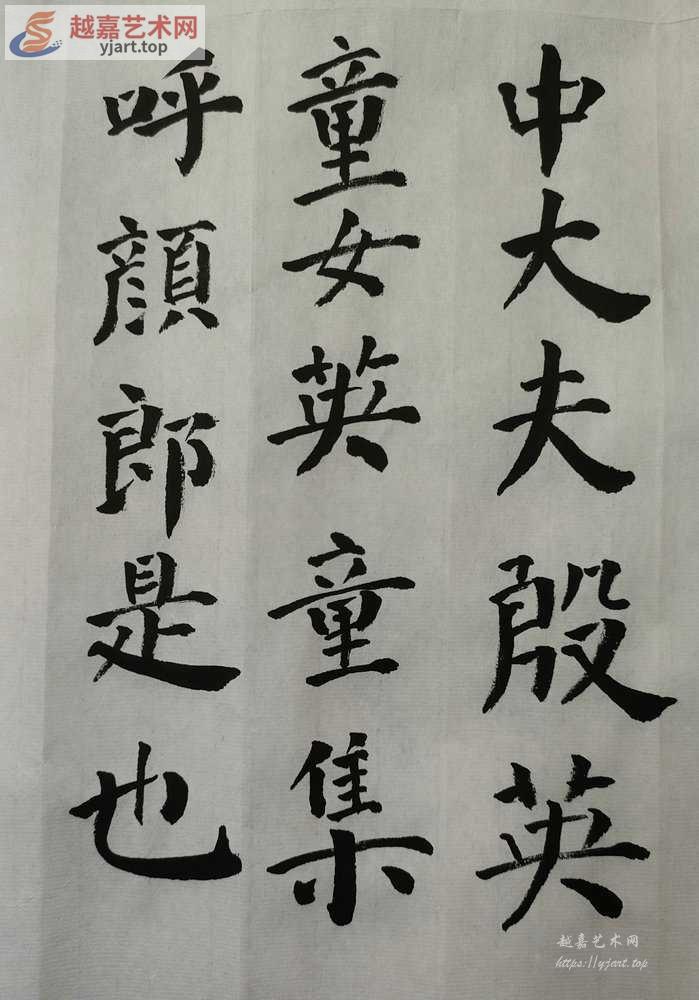 越嘉艺术网
yjart.top
中大夫殷英
童女英童集
呼顔郎是也
越嘉艺术网
https://yjart.top